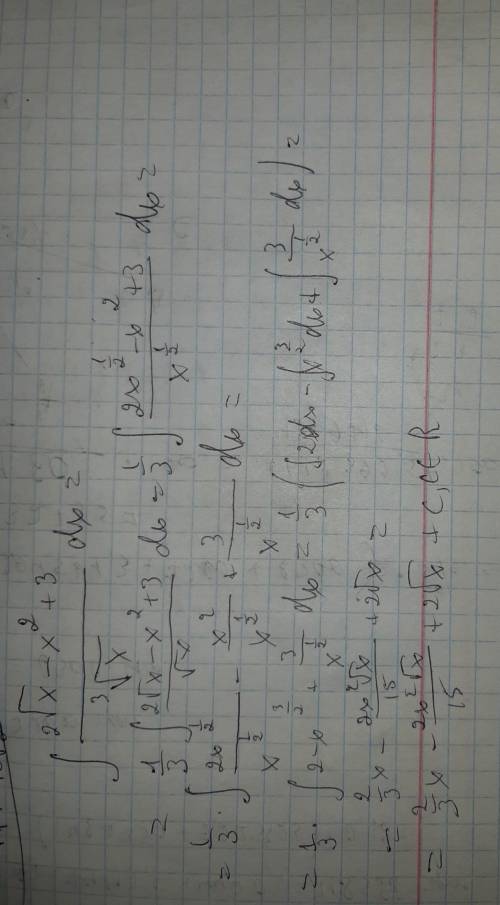 ∫ (2√x − x² + 3)/(3√x) dx =
= 1/3 ∫ (2√x − x² + 3)/√x dx = 1/3 ∫ (2x^(1/2) − x² + 3)/x^(1/2) dx =
= 1/3 · ∫ 2x^(1/2)/x^(1/2) − x²/x^(1/2) + 3/x^(1/2) dx =
= 1/3 · ∫ 2 − x^(3/2) + 3/x^(1/2) dx = 1/3 (∫ 2dx − ∫ x^(3/2) dx + ∫ 3/x^(1/2) dx) =
= 2/3 x − 2x²√x/15 + 2√x =
= 2/3 x − 2x²√x/15 + 2√x + C, C ∈ R